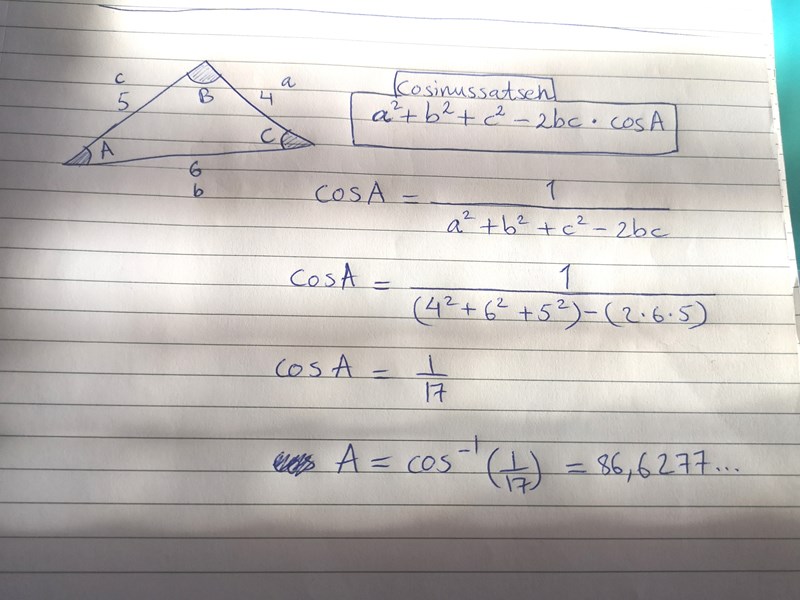 c
5
B
4
a
A
C
6
b
Cosinussatsen
a² + b² + c² - 2bc · cosA
cosA = 1 / (a² + b² + c² - 2bc)
cosA = 1 / ((4² + 6² + 5²) - (2·6·5))
cosA = 1/17
A = cos⁻¹(1/17) = 86,6277...